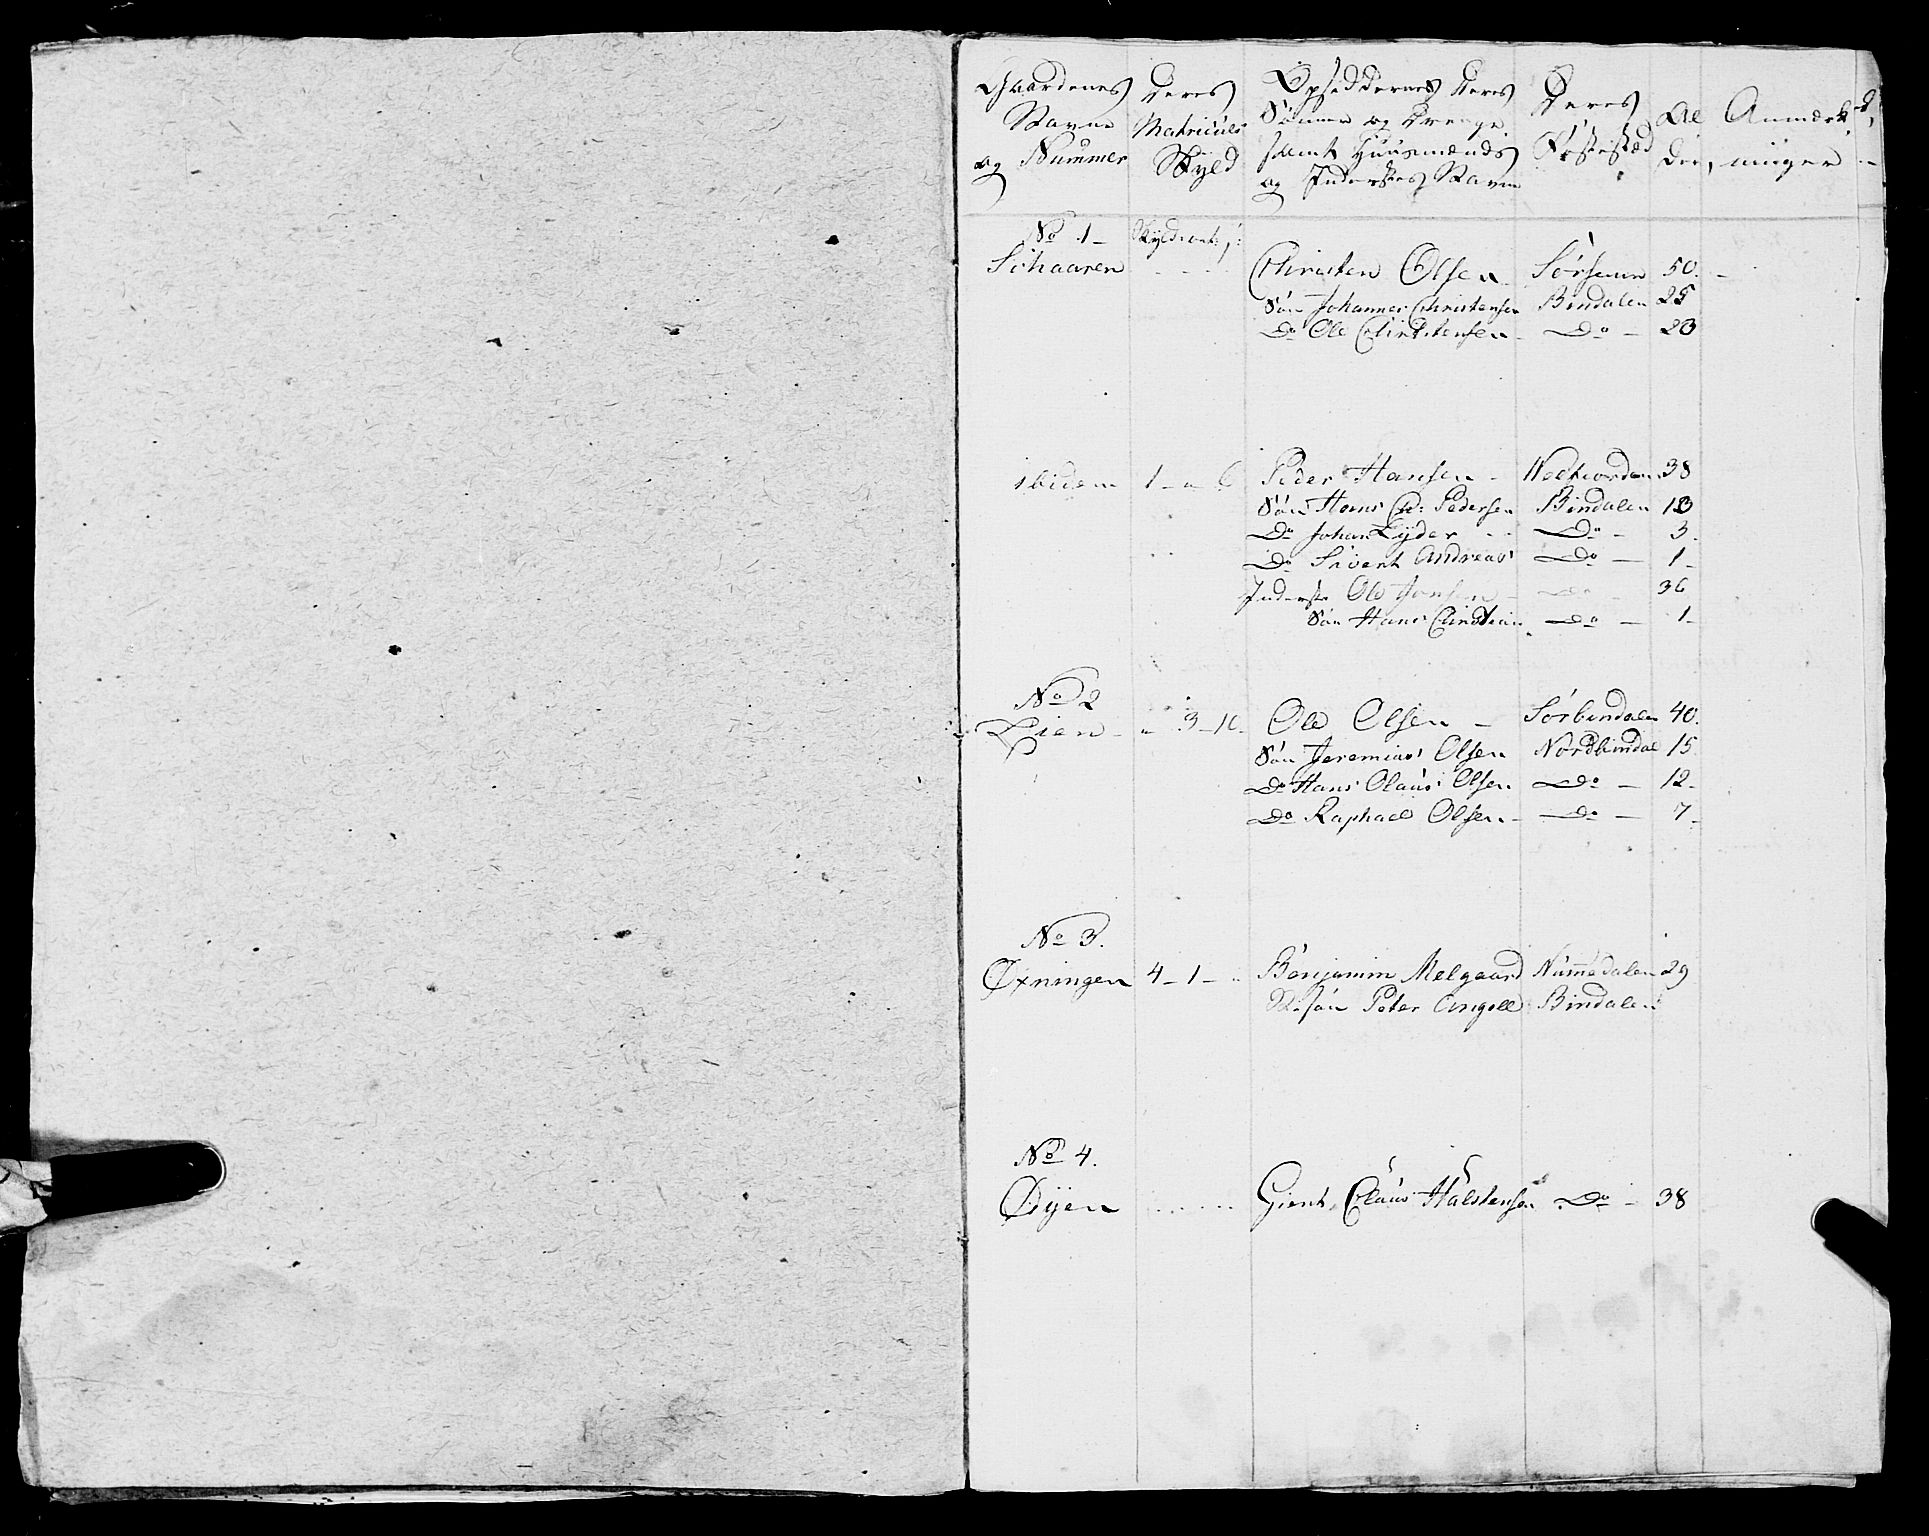 Gaardenes Deres Opsiddernes Deres Deres Al Anmærk-
Navne Matriculs Sønner og Drenge Fødested der, ninger
og Nummer Skyld samt Huusmænds
og Inderstes Navne
No 1 -
Schaaren Christen Olsen Sørsømn 50. -
Søn Johannes Christensen Bindalen 25
Do Ole Christensen - Do - 20
ibidem 1 - " 6 Peder Hansen - 38
Søn Hans Ch: Pedersen Bindalen 13
Do Johan Lyder - - Do - 3.
Do Sivert Andreas Do - 1 -
Inderste Ole Jonsen - Do - 36
Søn Hans Christian Do - 1 -
No 2
Lien - " 3 - 10 - Ole Olsen - Sørbindalen 40.
Søn Jeremias Olsen Nordbindal 15
Do Hans Olaus Olsen Do - 12 -
Do Raphael Olsen - Do - 7 -
No 3.
Øxningen 4 - 1 - " Benjamin Melgaard Nummedalen 29
St. søn Peter Angell Bindalen
No 4.
Øyen Gient. Claus Halstensen Do - 38